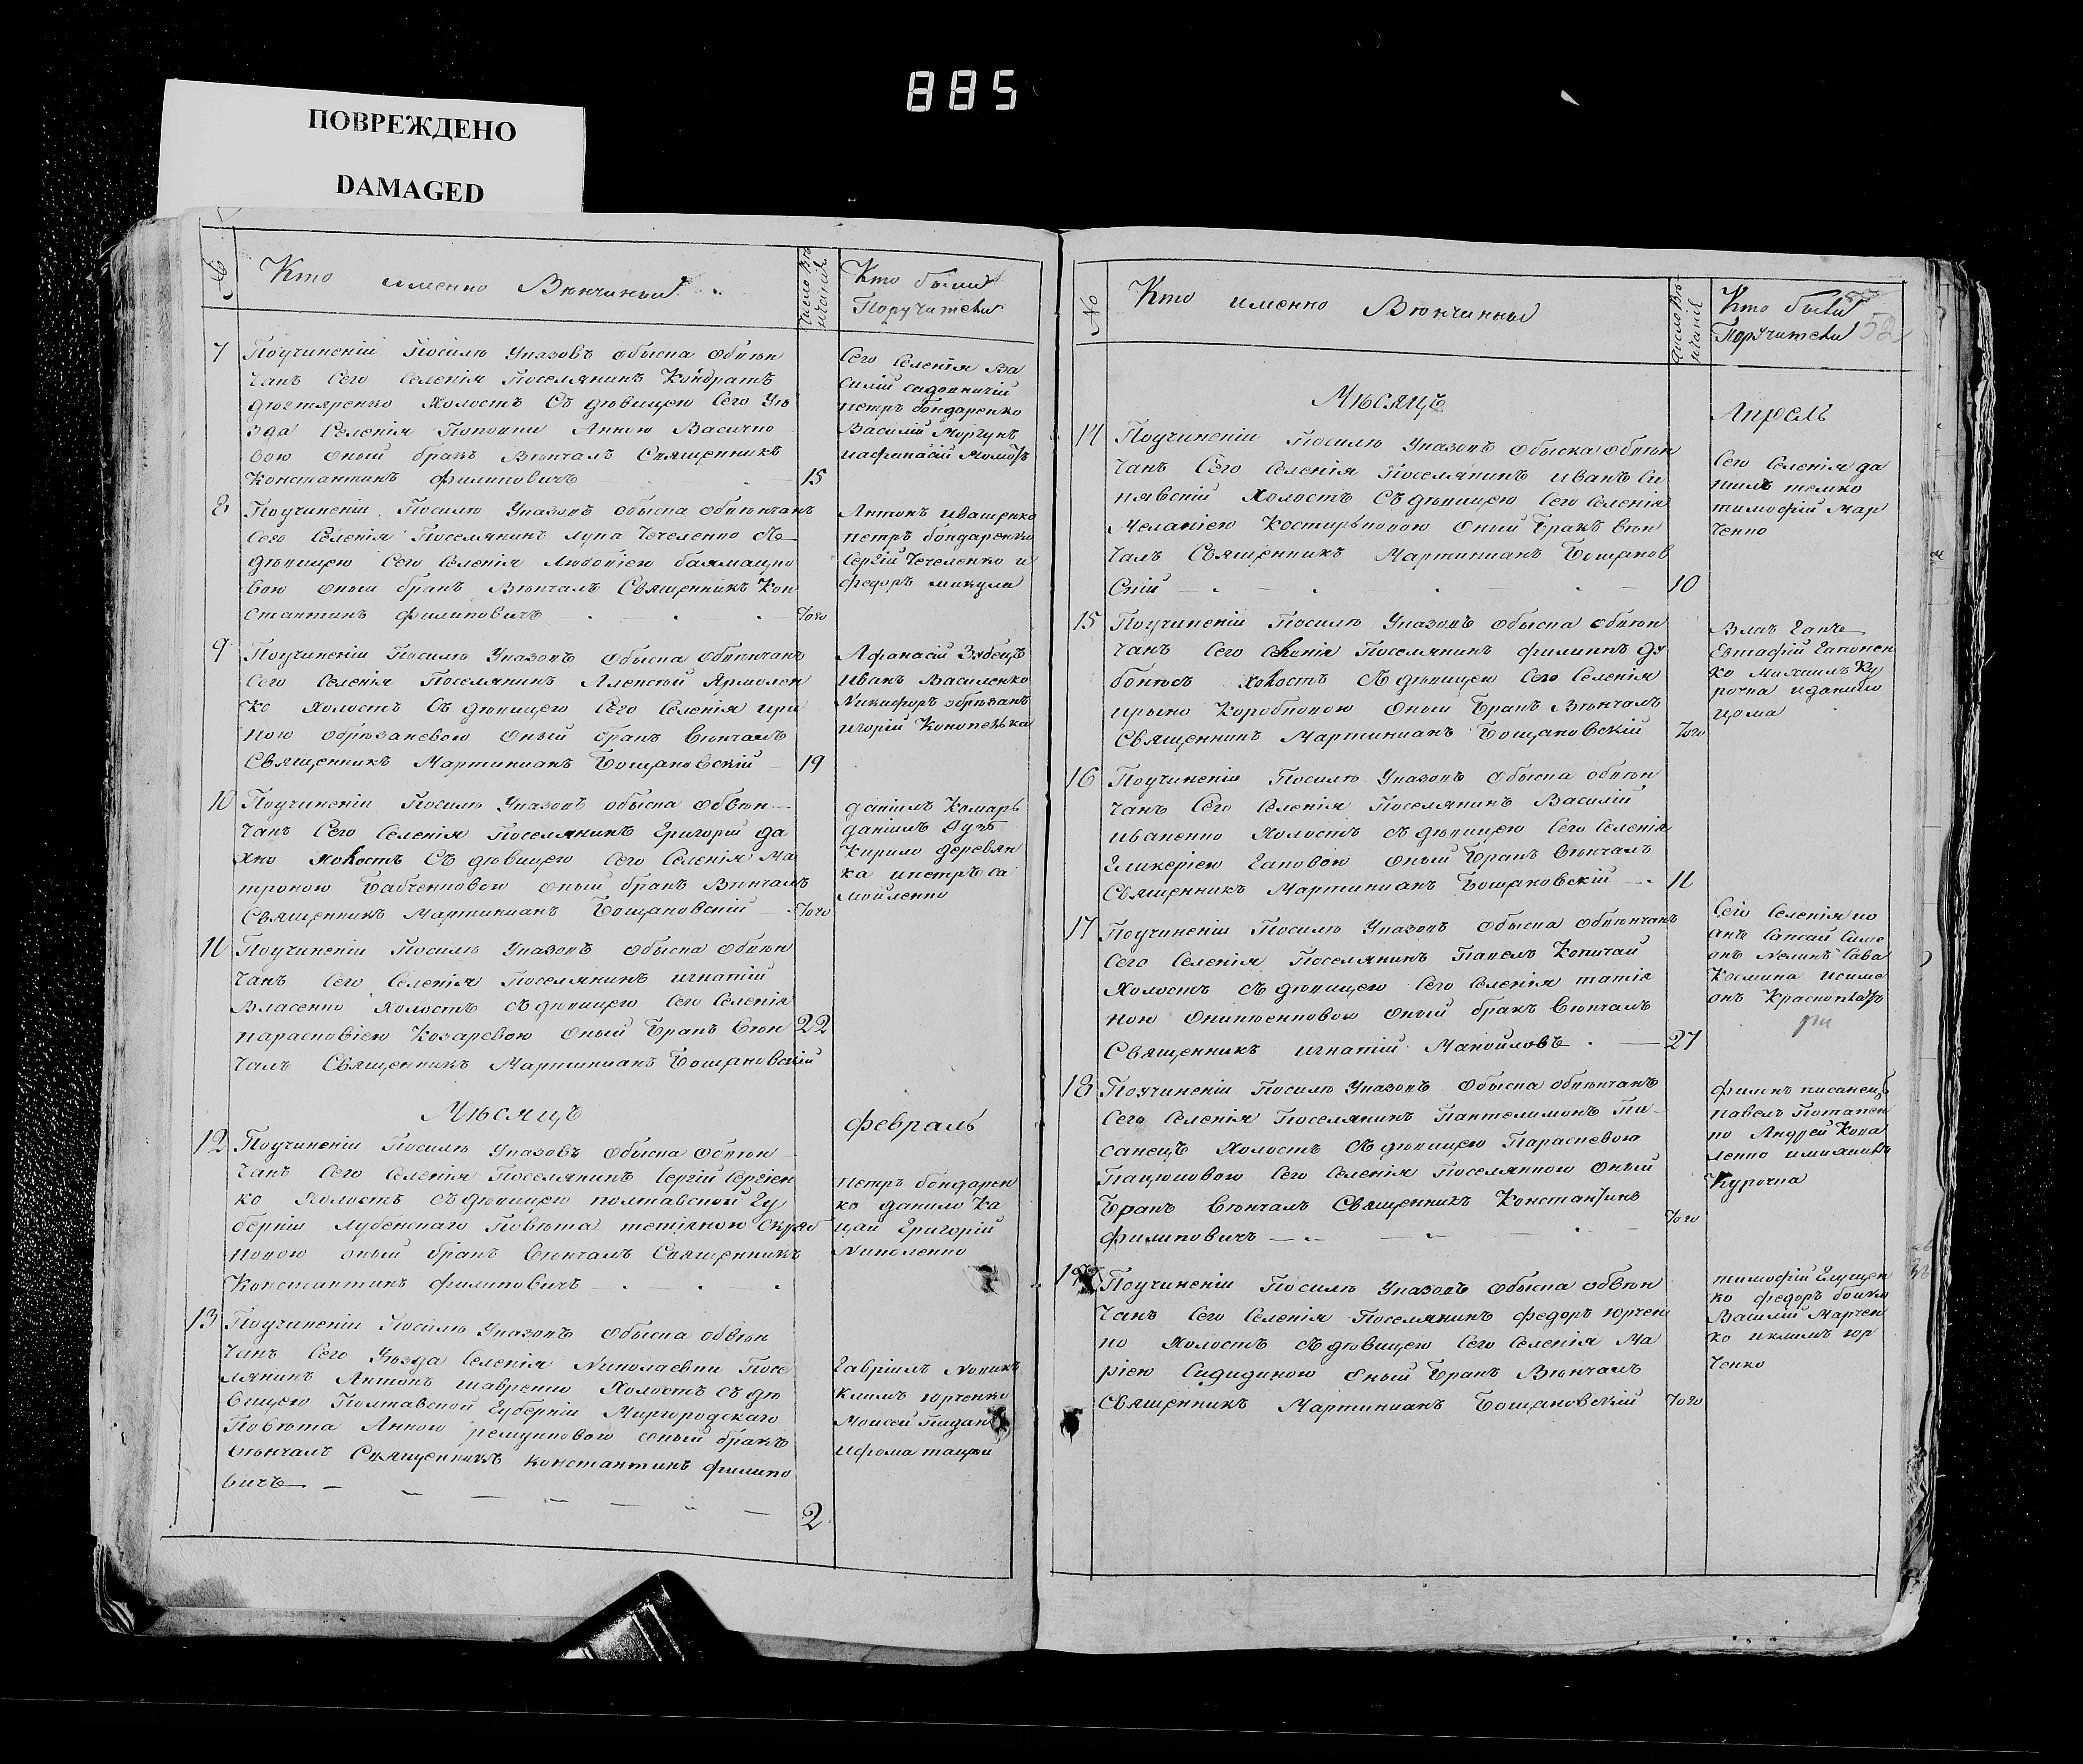 885
ПОВРЕЖДЕНО
DAMAGED
№
Кто именно Венчинный
Число венчаній
Кто были
Поручители
7
Поучиненіи Посилѣ Указовъ обыска обвѣн
чанъ Сего Селенія Поселянинъ Кондратъ
Дегтяренко Холостъ Съ дѣвицею Сего Уѣ
зда Селенія Поповки Анною Васичко
вою оный бракъ Вѣнчалъ Священникъ
Константинъ Филиповичъ
15
Сего Селенія Ва
силій садовничій
петръ бондаренко
Василій Моргунъ
8
Поучиненіи Посилѣ Указовъ обыска обвѣнчанъ
Сего Селенія Поселянинъ лука Чечеленко Съ
дѣвицею Сего Селенія
вою оный бракъ Вѣнчалъ Священникъ Кон
стантинъ Филиповичъ
того
Антонъ ивашенко
петръ бондаренко
Сергій Чечеленко и
федоръ микула
9
Поучиненіи Посилѣ Указовъ обыска обвѣнчанъ
Сего Селенія Поселянинъ Алексѣй Ярмолен
ко Холостъ Съ дѣвицею Сего Селенія ири
ною обрѣзаневою оный бракъ вѣнчалъ
Священникъ Мартиніанъ Бощановскій
19
Афанасій Зубецъ
Иванъ Василенко
Никифоръ обрѣзанъ
игорій Конопелька
10
Поучиненіи Посилѣ Указовъ обыска обвѣн
чанъ Сего Селенія Поселянинъ Григорій да
хно Холостъ Съ дѣвицею Сего Селенія Ма
троною Бабченковою оный бракъ Вѣнчалъ
Священникъ Мартиніанъ Бощановскій
того
даніилъ Комаръ
даніилъ
Кирило деревян
ка ипетръ са
мойленко
11
Поучиненіи Посилѣ Указовъ обыска обвѣн
чанъ Сего Селенія Поселянинъ игнатій
Власенко Холостъ съ дѣвицею Сего Селенія
парасковіею Козаревою оный бракъ Вѣн
чалъ Священникъ Мартиніанъ Бощановскій
22
Мѣсяцъ
февраль
12
Поучиненіи Посилѣ Указовъ обыска обвѣн
чанъ Сего Селенія Поселянинъ Сергій Сергіен
ко Холостъ съ дѣвицею полтавской Гу
берніи лубенскаго Повѣта
новою оный бракъ Вѣнчалъ Священникъ
Константинъ Филиповичъ
петръ бондарен
ко данило Ка
цай Григорій
Николенко
13
Поучиненіи Посилѣ Указовъ обыска обвѣн
чанъ Сего Уѣзда Селенія Николаевки Посе
лянинъ Антонъ шавренко Холостъ съ дѣ
вицею Полтавской Губерніи Миргородскаго
Повѣта Анною оный бракъ
Вѣнчалъ Священникъ Константинъ Филипо
вичъ
2
Гавріилъ Новикъ
Климъ юрченко
Моисей
ифома
№
Кто именно Вѣнчинны
Число вѣнчаній
Кто были
Поручители
52
Мѣсяцъ
Апрель
14
Поучиненіи Посилѣ Указовъ обыска обвѣн
чанъ Сего Селенія Поселянинъ иванъ Си
нявскій Холостъ Съ дѣвицею Сего Селенія
Меланіею Костирьковою оный бракъ вѣн
чалъ Священникъ Мартиніанъ Бощанов
скій
10
Сего Селенія да
нилъ темко
тимофій Мар
ченко
15
Поучиненіи Посилѣ Указовъ обыска обвѣн
чанъ Сего Селенія Поселянинъ филиппъ ду
боносъ холостъ Съ дѣвицею Сего Селенія
ирыною Коробковою оный бракъ Вѣнчалъ
Священникъ Мартиніанъ Бощановскій
того
Влас
Евтафій Гапонен
ко Михаилъ Ку
рочка иданило
16
Поучиненіи Посилѣ Указовъ обыска обвѣн
чанъ Сего Селенія Поселянинъ Василій
иваненко Холостъ съ дѣвицею Сего Селенія
Гликеріею Гаповою оный бракъ вѣнчалъ
Священникъ Мартиніанъ Бощановскій
11
17
Поучиненіи Посилѣ Указовъ обыска обвѣнчанъ
Сего Селенія Поселянинъ Павелъ Копичай
Холостъ Съ дѣвицею Сего Селенія татія
ною Оникіенковою оный бракъ вѣнчалъ
Священникъ игнатій Манойловъ
27
Сего Селенія ио
анъ Сапсай Симе
онъ Сава
Космина исиме
онъ
18
Поучиненіи Посилѣ Указовъ обыска обвѣнчанъ
Сего Селенія Поселянинъ Пантелимонъ Пи
санецъ Холостъ Съ дѣвицею Параскевою
Пацюковою Сего Селенія Поселянкою оный
бракъ вѣнчалъ Священникъ Константинъ
филиповичъ
того
филипъ писанецъ
павелъ Потапен
ко Андрей Кова
ленко имихаилъ
Курочка
19
Поучиненіи Посилѣ Указовъ обыска обвѣн
чанъ Сего Селенія Поселянинъ федоръ юрчен
ко Холостъ Съ дѣвицею Сего Селенія Ма
ріею Сидидиною оный бракъ Вѣнчалъ
Священникъ Мартиніанъ Бощановскій
того
тимофій Глущен
ко федоръ бойко
Василій Марчен
ко иклимъ юр
ченко